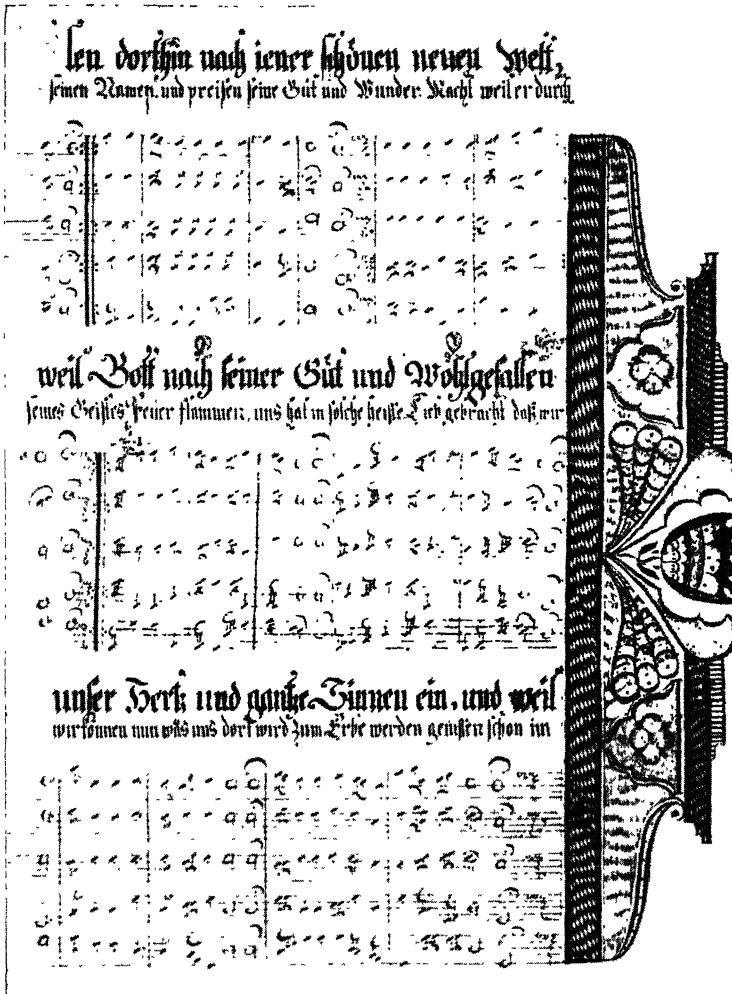 len dorthin nach iener schönen neuen Welt,
seinen Namen, und preisen seine Güt und Wunder Macht weil er durch
weil Gott nach seiner Güt und Wohlgefallen
seines Geistes Feuer flammen, uns hat in solche heisse Lieb gebracht daß wir
unser Hertz und gantze Sinnen ein, und weil
wir können nun was uns dort wird zum Erbe werden geniessen schon im